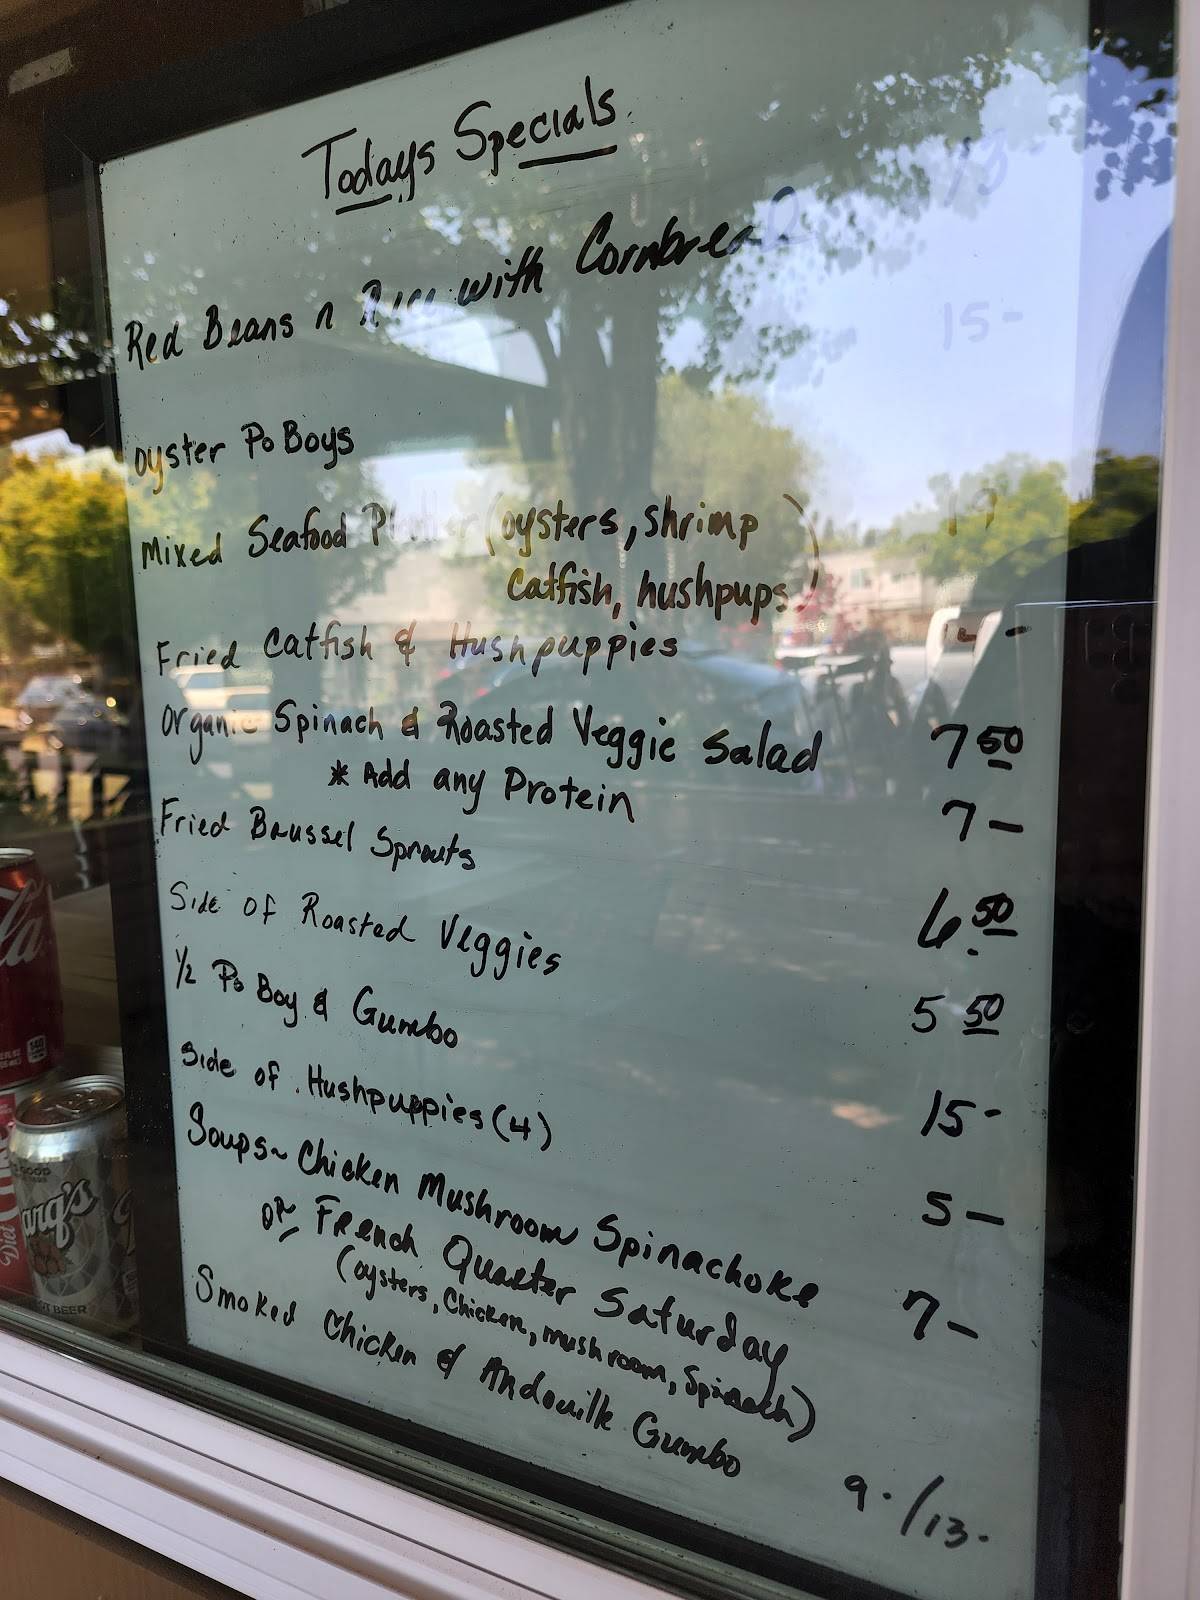 Todays Specials
Red Beans n Rice with Cornbread 13
Oyster Po Boys 15-
Mixed Seafood Platter (oysters, shrimp 19
catfish, hushpups)
Fried Catfish & Hushpuppies -
Organic Spinach & Roasted Veggie Salad 7 50
* Add any Protein 7-
Fried Brussel Sprouts 6.50
Side of Roasted Veggies 5 50
1/2 Po Boy & Gumbo 15-
Side of Hushpuppies (4) 5-
Soups~ Chicken Mushroom Spinachoke 7-
or French Quarter Saturday
(oysters, Chicken, mushroom, Spinach)
Smoked Chicken & Andouille Gumbo 9-/13-
la
Diet
arq's
ROOT BEER